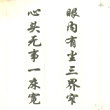 眼内有尘三界窄
心头无事一床宽